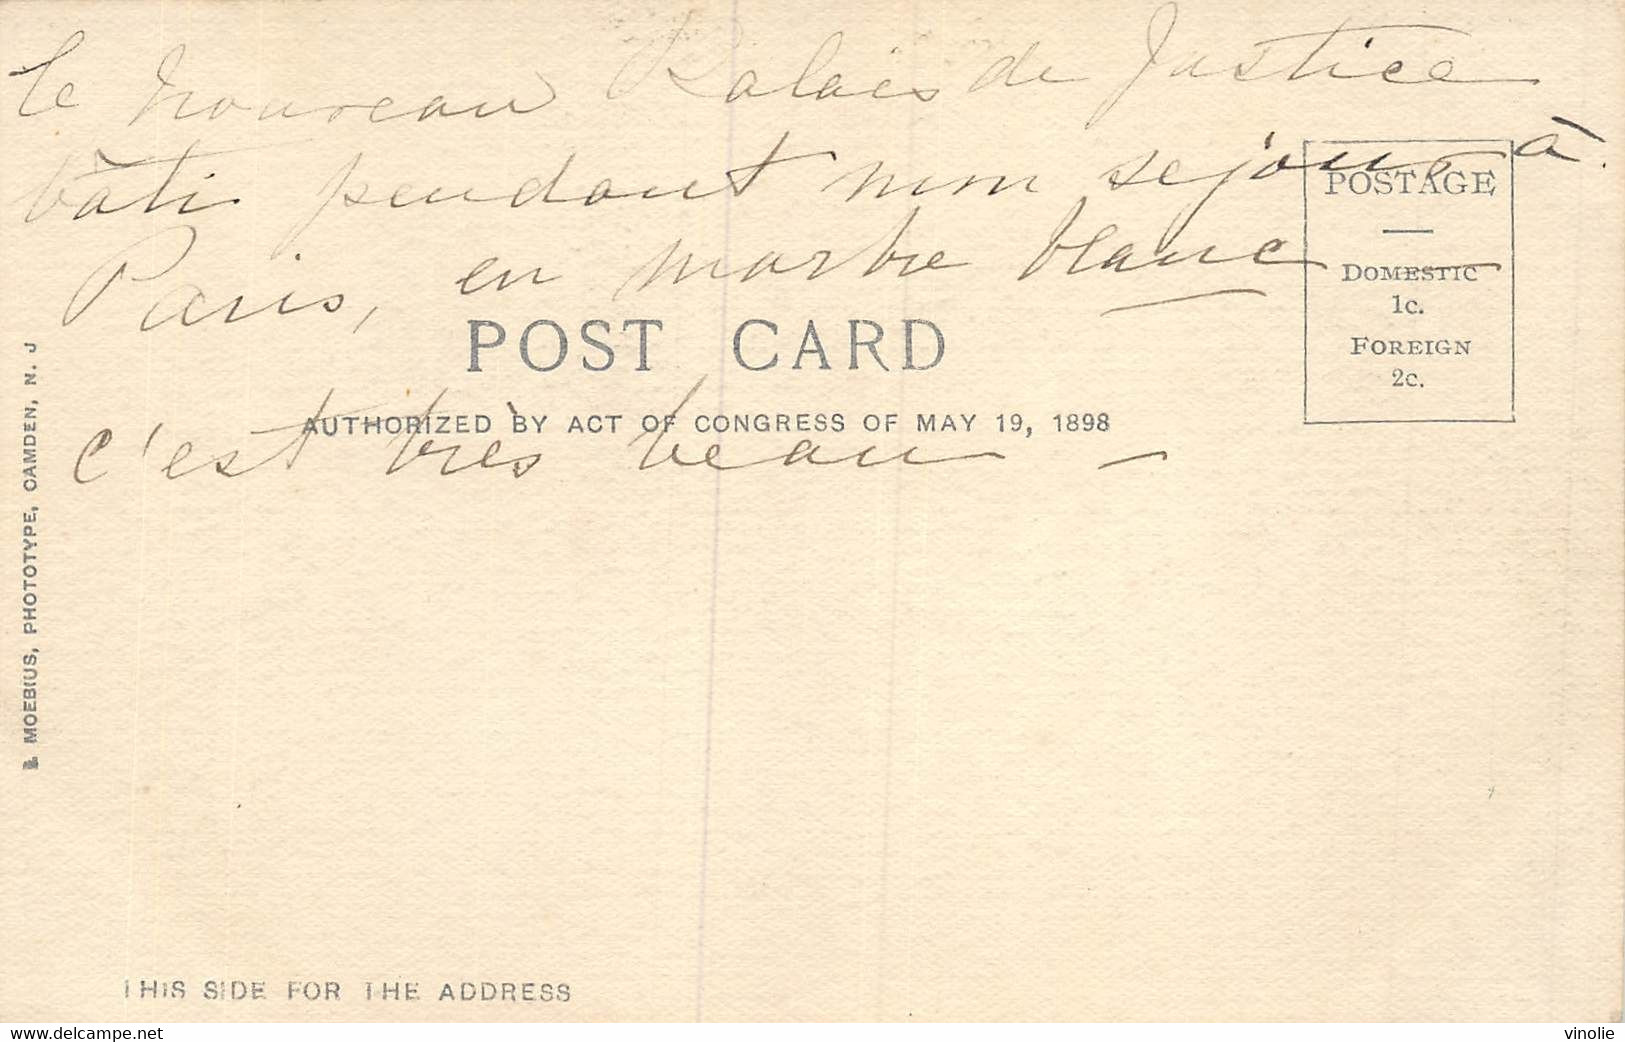 le nouveau Palais de Justice
bâti pendant mon sejour à
Paris, en marbre blanc
POSTAGE
DOMESTIC
1c.
FOREIGN
2c.
POST CARD
AUTHORIZED BY ACT OF CONGRESS OF MAY 19, 1898
c'est très beau —
MOEBIUS, PHOTOTYPE, CAMDEN, N. J
THIS SIDE FOR THE ADDRESS
delcampe.net
vinolie